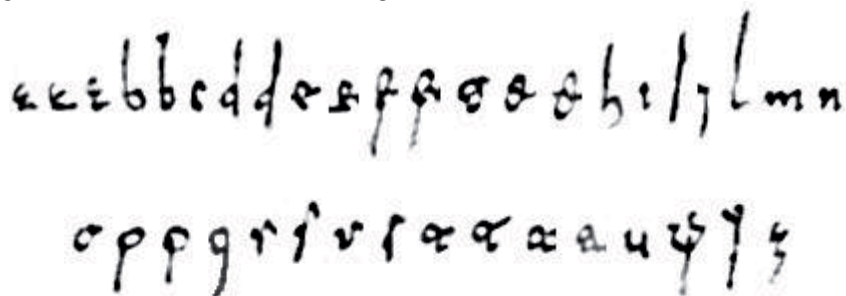 a a a b b c d d e e f f g g g h i l j l m n
o p p q r r r s t t t t u x y z